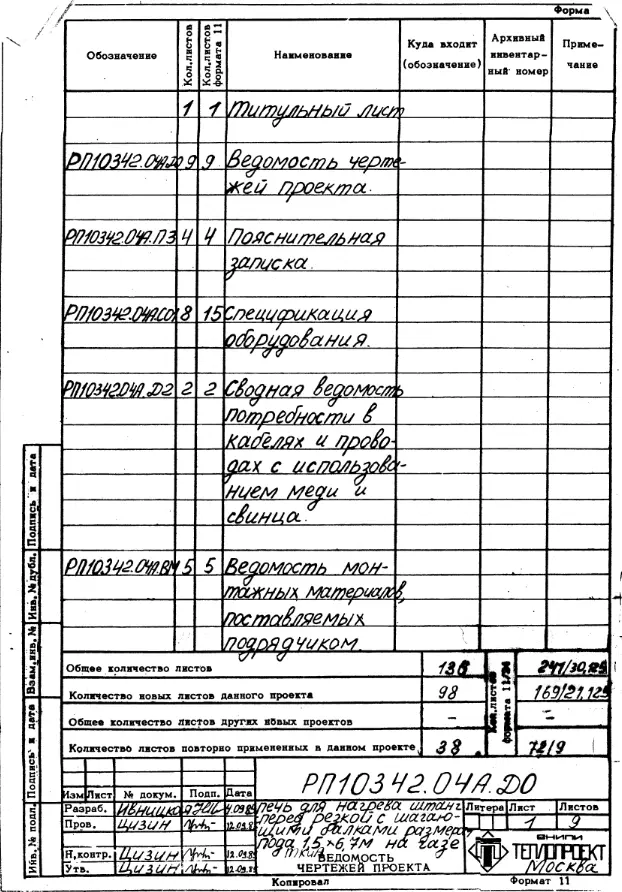 Форма
Обозначение
Кол.листов
Кол.листов формата 11
Наименование
Куда входит (обозначение)
Архивный инвентарный номер
Примечание
1 1 Титульный лист
РП10342.04А.ДО 9 9 Ведомость черте-
жей проекта.
РП10342.04А.ПЗ 4 4 Пояснительная
записка.
РП10342.04А.СО 8 15 Спецификация
оборудования.
РП10342.04А.Д2 2 2 Сводная ведомость
потребности в
кабелях и прово-
дах с использова-
нием меди и
свинца.
РП10342.04А.ВМ 5 5 Ведомость мон-
тажных материалов,
поставляемых
подрядчиком.
Общее количество листов 136
Количество новых листов данного проекта 98
Общее количество листов других новых проектов – –
Количество листов повторно примененных в данном проекте 38 72/9
Кол.листов формата 11/24
РП10342.04А.ДО
Изм Лист № докум. Подп. Дата
Разраб. Ивницкая
Пров. Цизин
Н.контр. Цизин
Утв. Цизин
печь для нагрева штанг
перед резкой с шагаю-
щими балками размера
пода 1,5×6,7м на газе
ВЕДОМОСТЬ
ЧЕРТЕЖЕЙ ПРОЕКТА
Литера Лист Листов
1 9
ВНИПИ
ТЕПЛОПРОЕКТ
Москва
Копировал
Формат 11
Инв.№ подл.
Подпись и дата
Взам.инв.№
Инв.№ дубл.
Подпись и дата